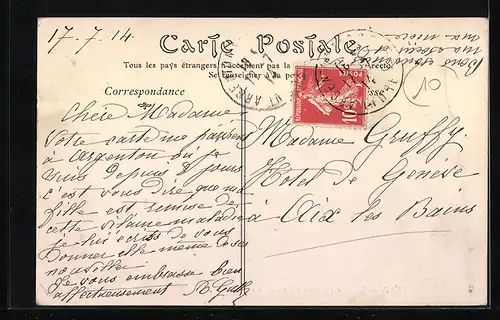 17-7-14
Carte Postale
Tous les pays étrangers n'acceptent pas la
Se renseigner à la poste
Correspondance
POSTES
10
Chère Madame
Votre carte me parvient
à Argenton où je
suis depuis 8 jours
c'est vous dire que ma
fille est remise de
cette vilaine maladie
je lui écris de vous
donner elle même ses
nouvelles
Je vous embrasse bien
affectueusement
Madame Gruffy
Hôtel de Genève
à Aix les Bains
Bons souvenirs
ma sœur et
10